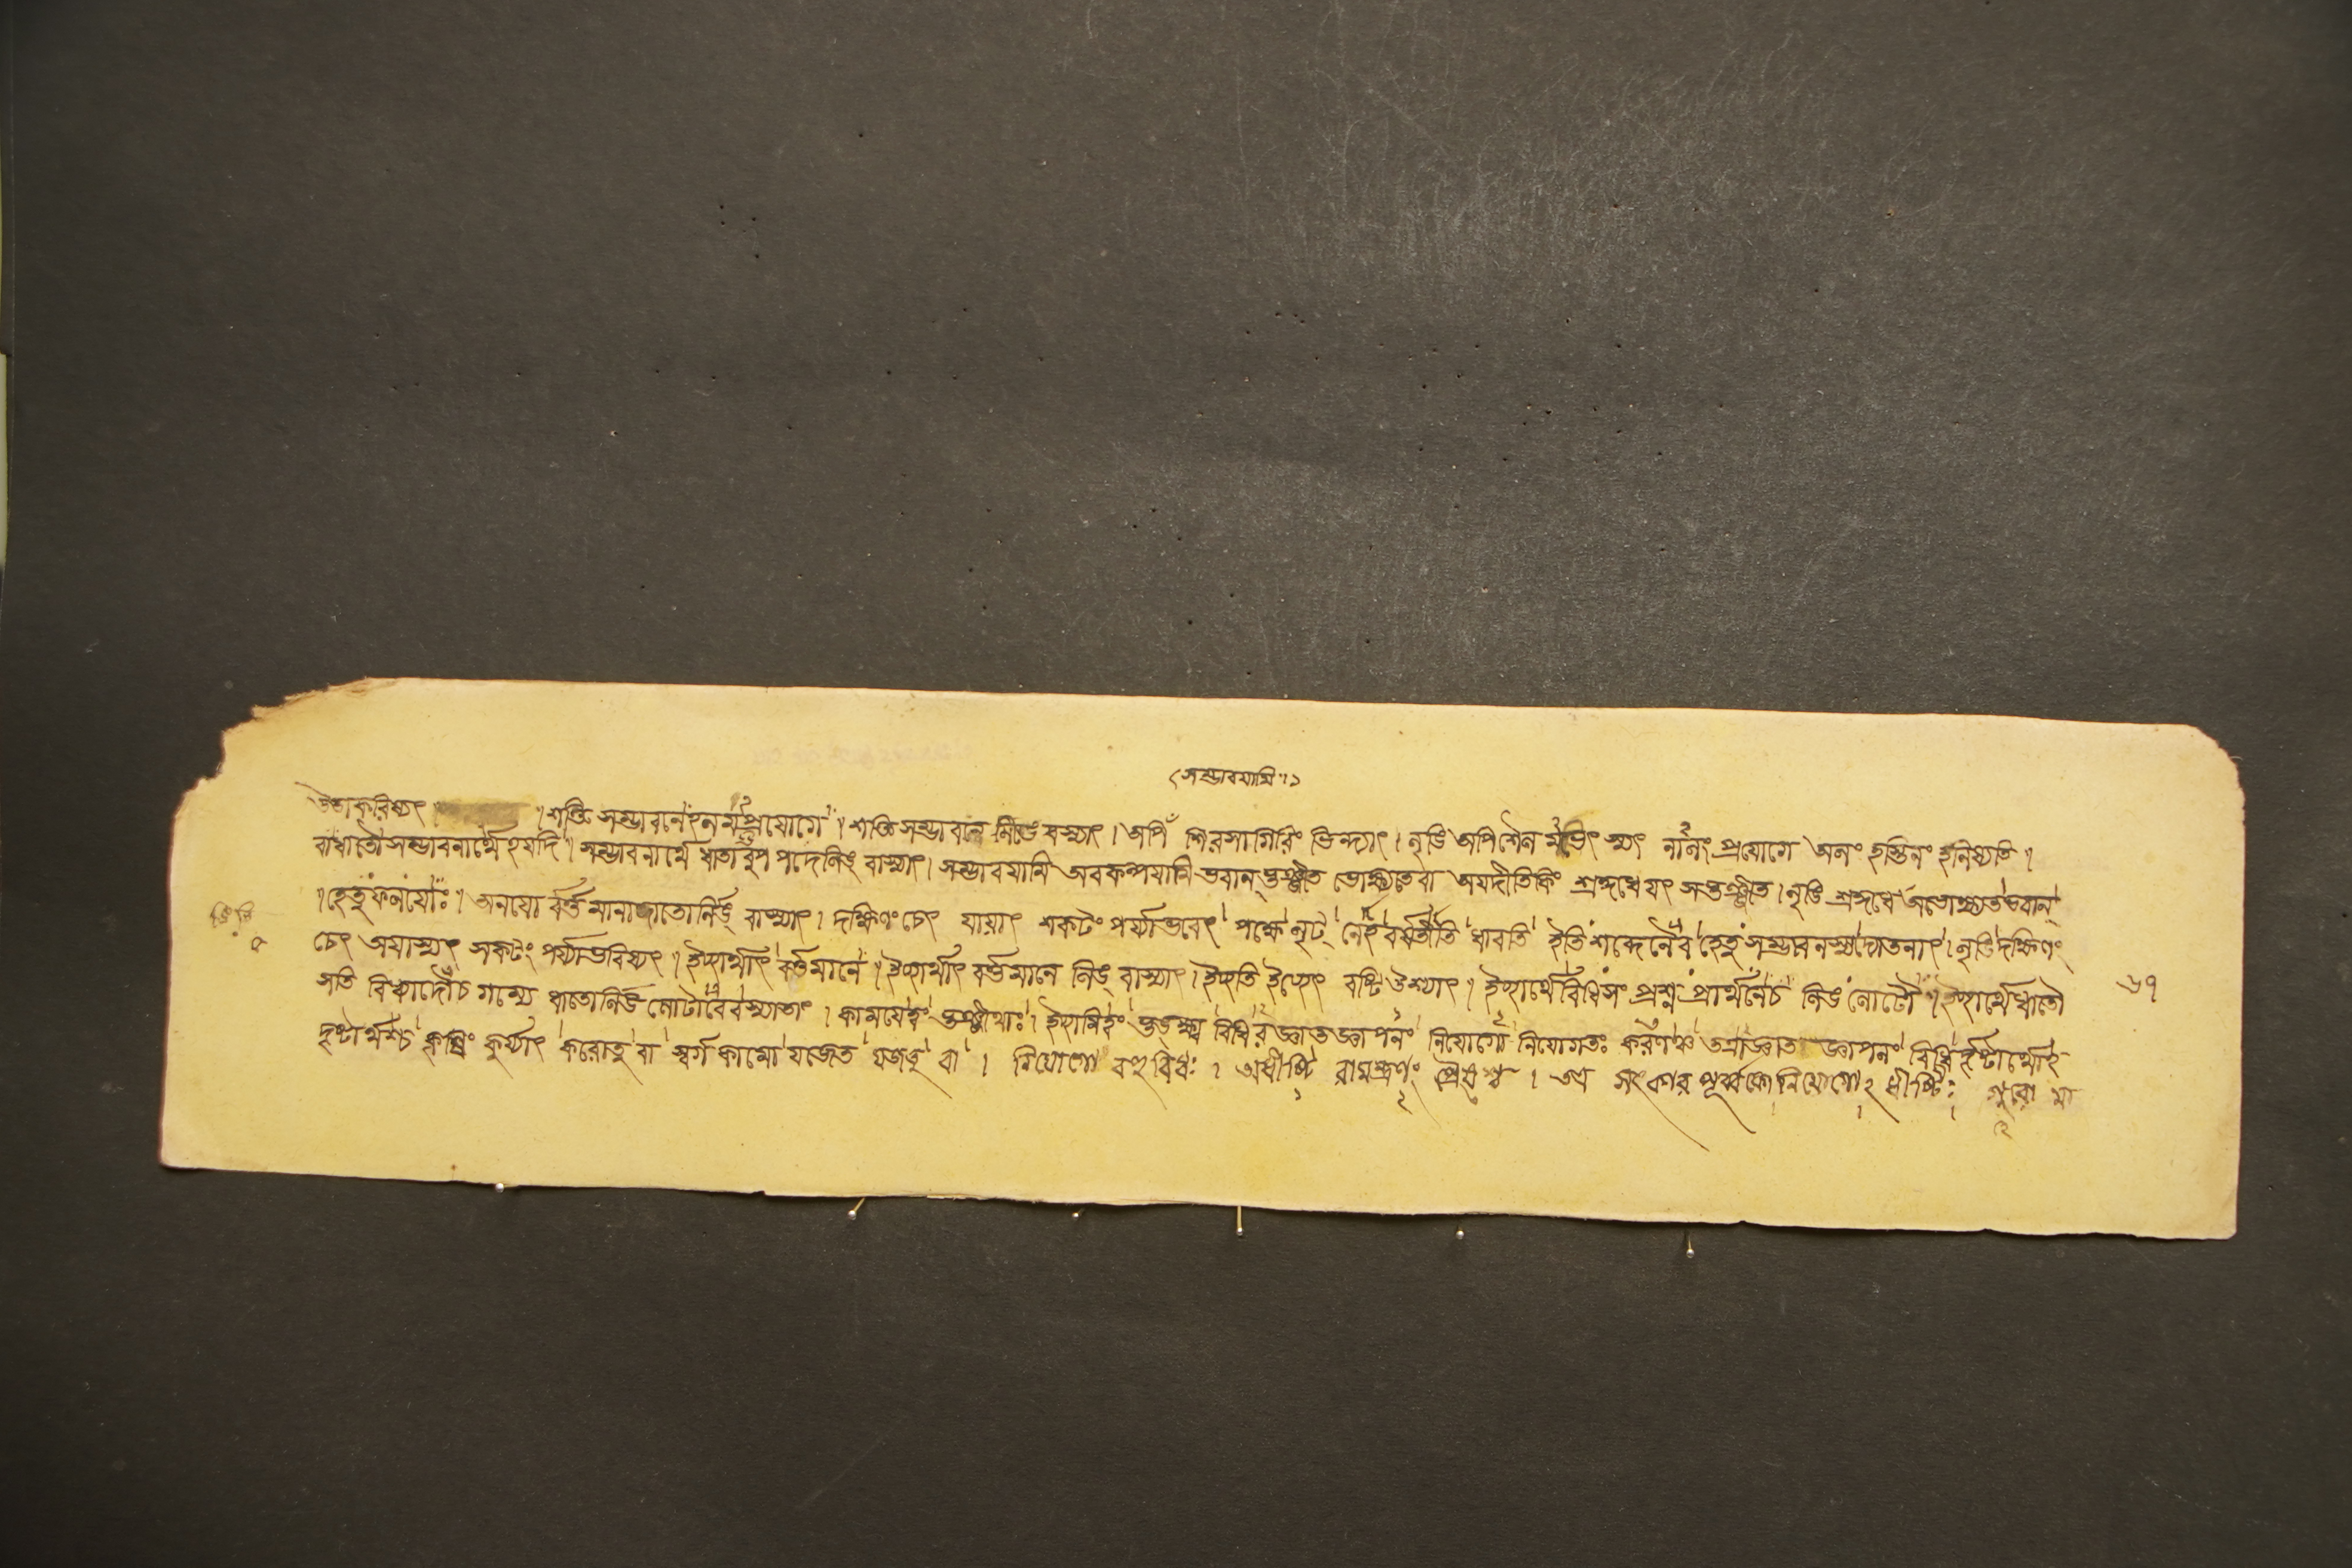 (সম্ভাবয়ামি।১
উতাকরিষ্যৎ। ।শক্তি সম্ভাবনেঽলমর্থাপ্রয়োগে। শক্তিসম্ভাবনে লিঙেবস্যাৎ। অপি শিরসাগিরিং ভিন্দ্যাৎ। লৃঙি অপিশৈল মভেৎস্যৎ নালং প্রয়োগে অলং হস্তিনং হনিষ্যতি।
বাধাতৌসম্ভাবনার্থেঽযদি। সম্ভাবনার্থে ধাতাবুপপদেলিঙ্ বাস্যাৎ। সম্ভাবয়ামি অবকল্পয়ামি ভবান্ ভুঞ্জীত ভোক্ষ্যতেবা অযদীতিকিং শ্রদ্দধেযৎ সভুঞ্জীত। লৃঙি শ্রদ্দধে অভোক্ষ্যতভবান্
।হেতুফলয়োঃ। অনয়ো র্বর্ত্তমানাদ্ধাতোর্লিঙ্ বাস্যাৎ। দক্ষিণং চেৎ যায়াৎ শকটং পর্য্যাভবেৎ পক্ষে লৃট্ নেহ বর্ষতীতি ধাবতি ইতিশব্দেনৈব হেতুসম্ভাবনস্যদ্যোতনাৎ। লৃঙি দক্ষিণং
চেৎ অযাস্যৎ সকটং পর্য্যাভবিষ্যৎ। ইচ্ছার্থাৎ বর্ত্তমানে। ইচ্ছার্থাৎ বর্ত্তমানে লিঙ্ বাস্যাৎ। ইচ্ছতি ইচ্ছেৎ বষ্টি উশ্যাৎ। ইচ্ছার্থেবিধিসংপ্রশ্নপ্রার্থনেচ লিঙলোটৌ। ইচ্ছার্থেধাতৌ
সতি বিধ্যাদৌচ গম্যে ধাতোর্লিঙলোটাবেবস্যাতাং। কাময়েহং ভুঞ্জীথাঃ। ইচ্ছামিহং ভুঙ্ক্ষ্ব বিধিরজ্ঞাতজ্ঞাপনং নিয়োগো নিয়োগতঃ করণঞ্চ তত্রাজ্ঞাত জ্ঞাপনং বিধির্দৃষ্টার্থোঽ-
দৃষ্টার্থশ্চ কৃষিং কুর্য্যাৎ করোতু বা স্বর্গকামো যজেত যজতু বা। নিয়োগো বহুবিধঃ। অধীষ্টি রামন্ত্রণং প্রৈষশ্চ। অত্র সৎকার পূর্ব্বকো নিয়োগোঽধীষ্টিঃ গুরো মা
৬৭